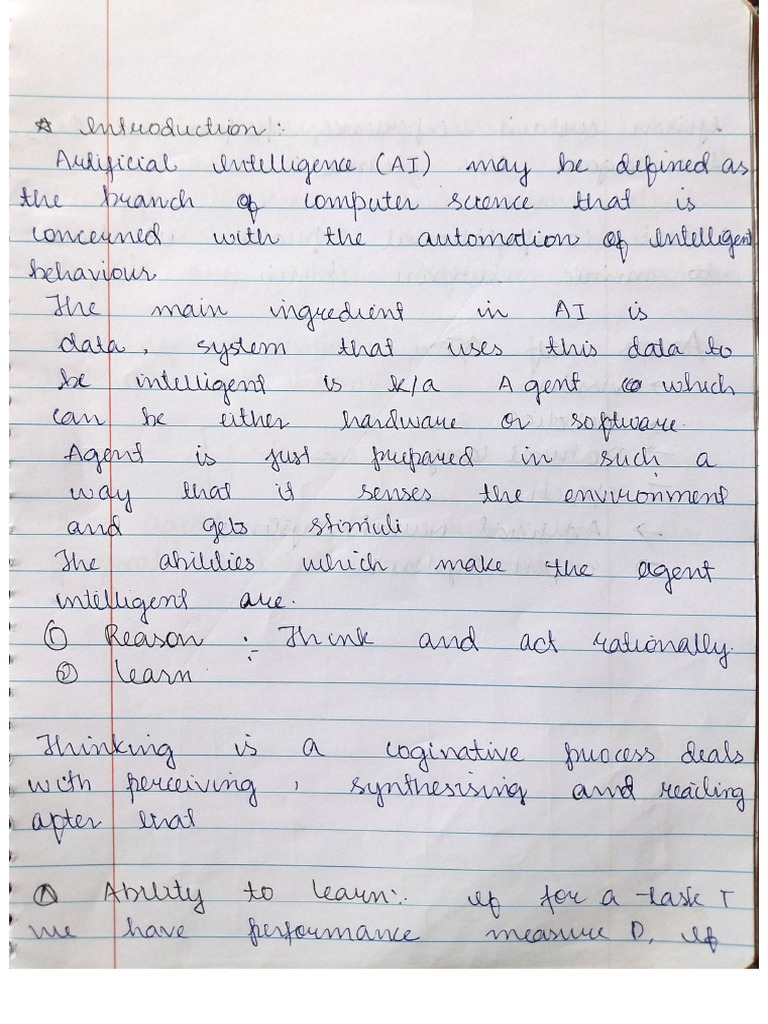 ☆ Introduction:
Artificial Intelligence (AI) may be defined as
the branch of computer science that is
concerned with the automation of Intelligent
behaviour
The main ingredient in AI is
data, system that uses this data to
be intelligent is k/a Agent which
can be either hardware or software.
Agent is just prepared in such a
way that it senses the environment
and gets stimuli
The abilities which make the agent
intelligent are.
① Reason :- Think and act rationally.
② Learn
Thinking is a coginative process deals
with perceiving, synthesising and reacting
after that
Ability to learn:. If for a task T
we have performance measure P, if